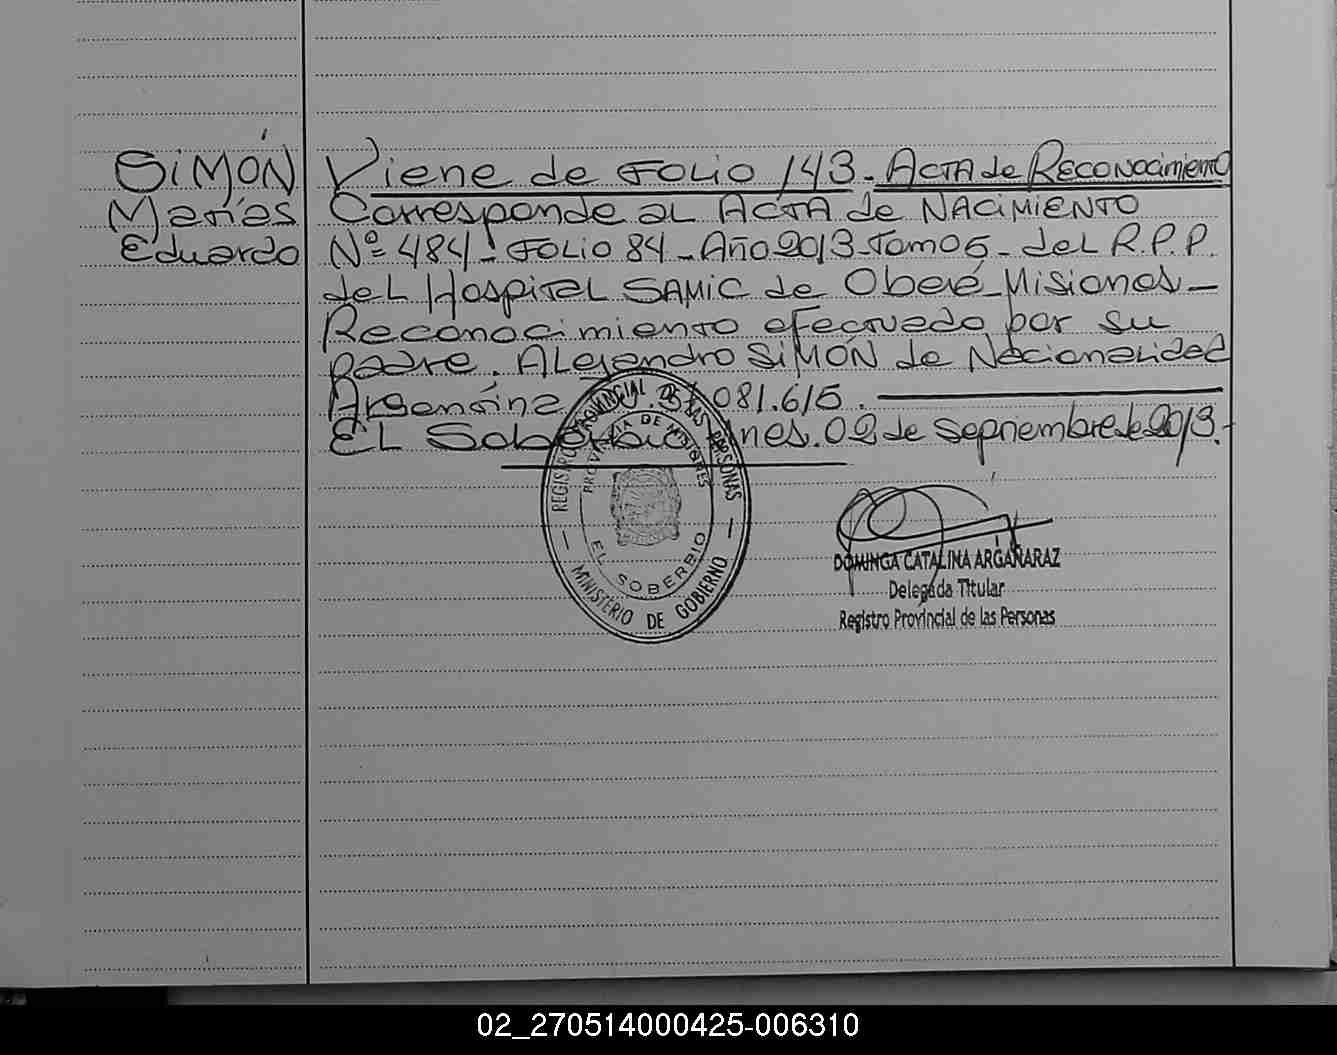 SIMÓN
Matías
Eduardo
Viene de FOLIO 143. ACTA de RECONOCIMIENTO
Corresponde al ACTA de NACIMIENTO
Nº 484 - FOLIO 84 - Año 2013 - Tomo 5 - del R.P.P.
del Hospital SAMIC de Oberá - Misiones -
Reconocimiento efectuado por su
padre. Alejandro SIMÓN de Nacionalidad
Argentina 081.615.
EL Soberbio Mnes. 02 de Septiembre de 2013.-
REGISTRO PROVINCIAL DE LAS PERSONAS
PROVINCIA DE MISIONES
EL SOBERBIO
MINISTERIO DE GOBIERNO
DOMINGA CATALINA ARGAÑARAZ
Delegada Titular
Registro Provincial de las Personas
02_270514000425-006310